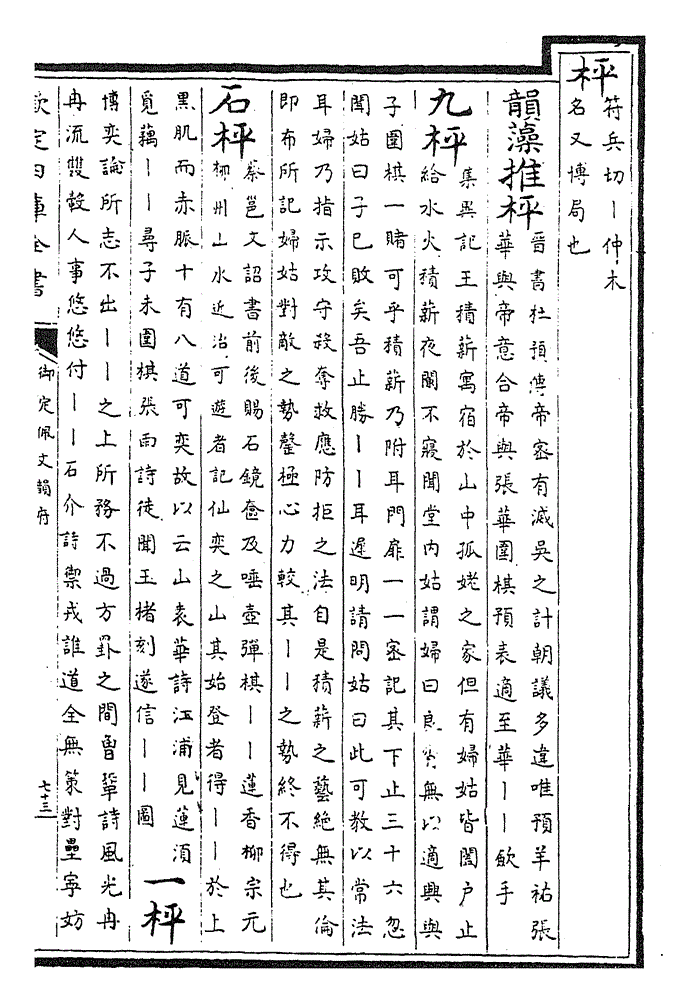 枰 符兵切丨仲木
名又博局也
韻藻推枰 晉書杜預傳帝密有滅吳之計朝議多違唯預羊祜張
華與帝意合帝與張華圍棋預表適至華丨丨歛手
九枰 集異記王積薪寓宿於山中孤姥之家但有婦姑皆闔户止
給水火積薪夜闌不寢聞堂内姑謂婦曰良宵無以適興與
子圍棋一賭可乎積薪乃附耳門扉一一密記其下止三十六忽
聞姑曰子已敗矣吾止勝丨丨耳遲明請問姑曰此可教以常法
耳婦乃指示攻守殺奪救應防拒之法自是積薪之藝絶無其倫
即布所記婦姑對敵之勢罄極心力較其丨丨之勢終不得也
石枰 蔡邕文詔書前後賜石鏡奩及唾壺彈棋丨丨蓮香柳宗元
柳州山水近治可遊者記仙奕之山其始登者得丨丨於上
黑肌而赤脈十有八道可奕故以云山袁華詩江浦見蓮湏
覓藕丨丨尋子未圍棋張雨詩徒聞玉楮刻遂信丨丨圖 一枰
博奕論所志不出丨丨之上所務不過方罫之間曾鞏詩風光冉
冉流雙轂人事悠悠付丨丨石介詩禦戎誰道全無策對壘寧妨
欽定四庫全書
御定佩文韻府
七十三